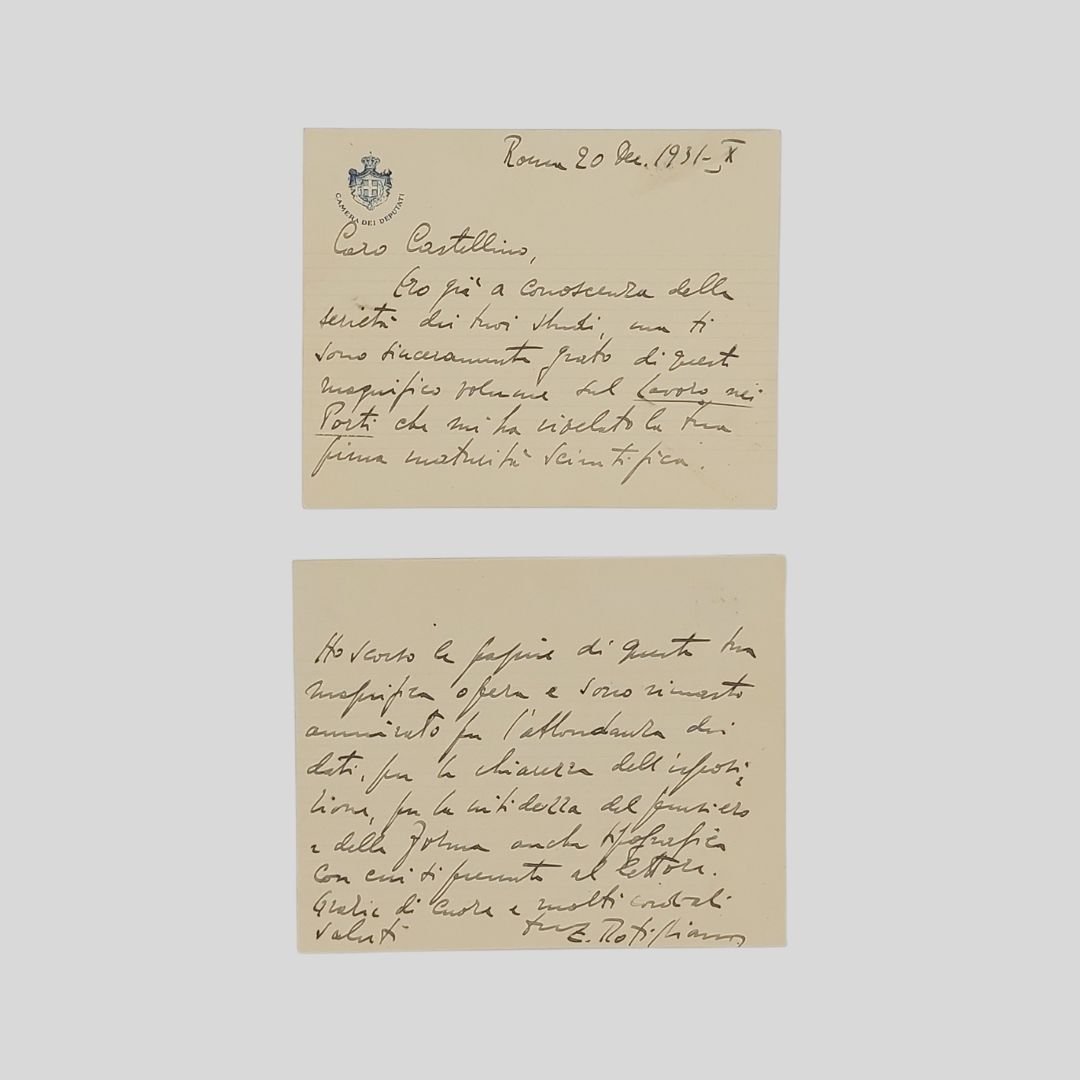 CAMERA DEI DEPUTATI
Roma 20 Dec. 1931-X
Caro Castellino,
Ero già a conoscenza della
serietà dei tuoi studi, ma ti
sono sinceramente grato di questo
magnifico volume sul Lavoro nei
Porti che mi ha rivelato la tua
piena maturità scientifica.
Ho scorso le pagine di questa tua
magnifica opera e sono rimasto
ammirato per l'abbondanza dei
dati, per la chiarezza dell'esposi-
zione, per la nitidezza del pensiero
e della forma anche tipografica
con cui si presenta al lettore.
Grazie di cuore e molti cordiali
saluti
tuo E. Rotigliano